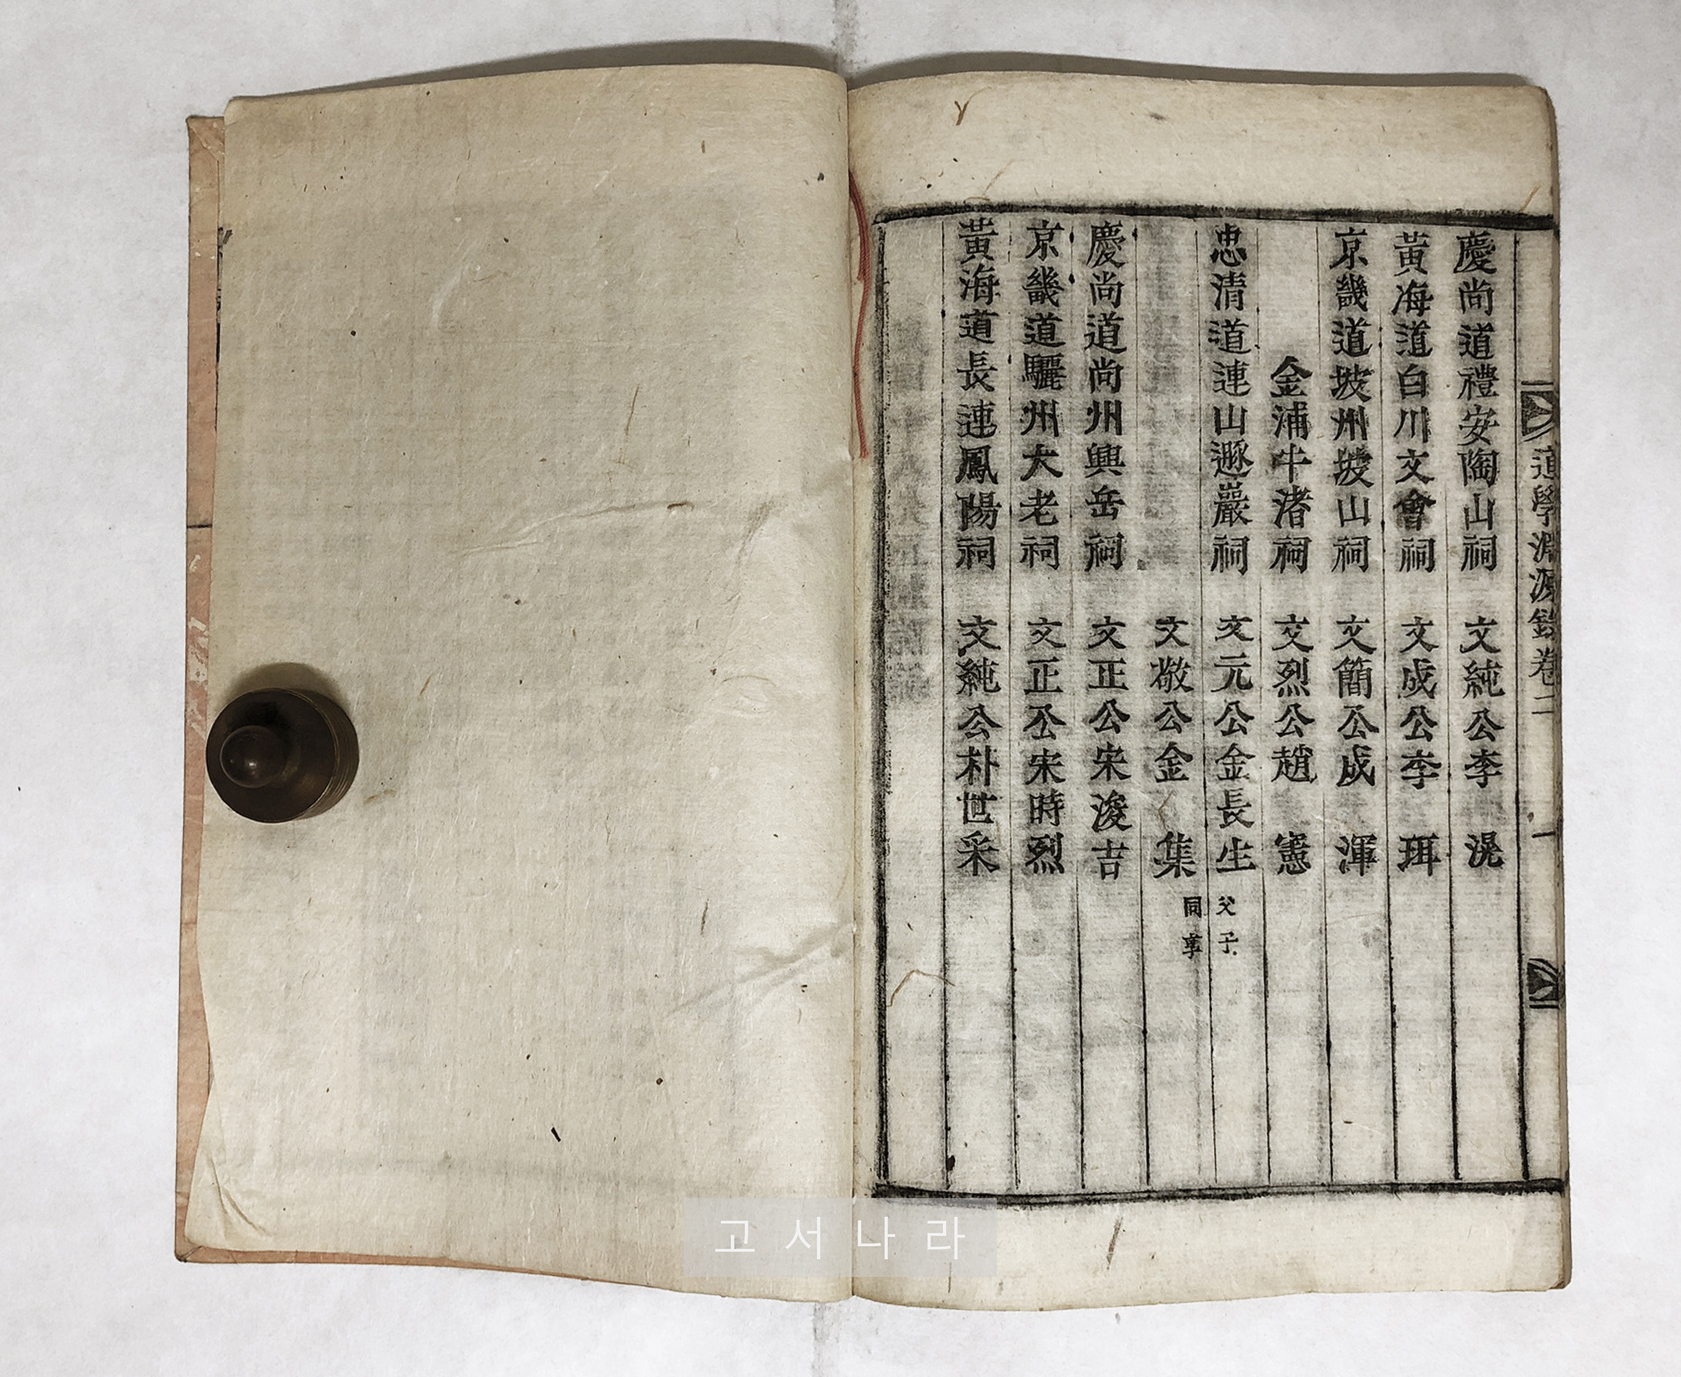 道學淵源錄卷二 一
慶尚道禮安陶山祠 文純公李 滉
黃海道白川文會祠 文成公李 珥
京畿道坡州坡山祠 文簡公成 渾
金浦牛渚祠 文烈公趙 憲
忠清道連山遯巖祠 文元公金長生 父子
文敬公金 集 同享
慶尚道尚州興岳祠 文正公宋浚吉
京畿道驪州大老祠 文正公宋時烈
黃海道長連鳳陽祠 文純公朴世采
고서나라